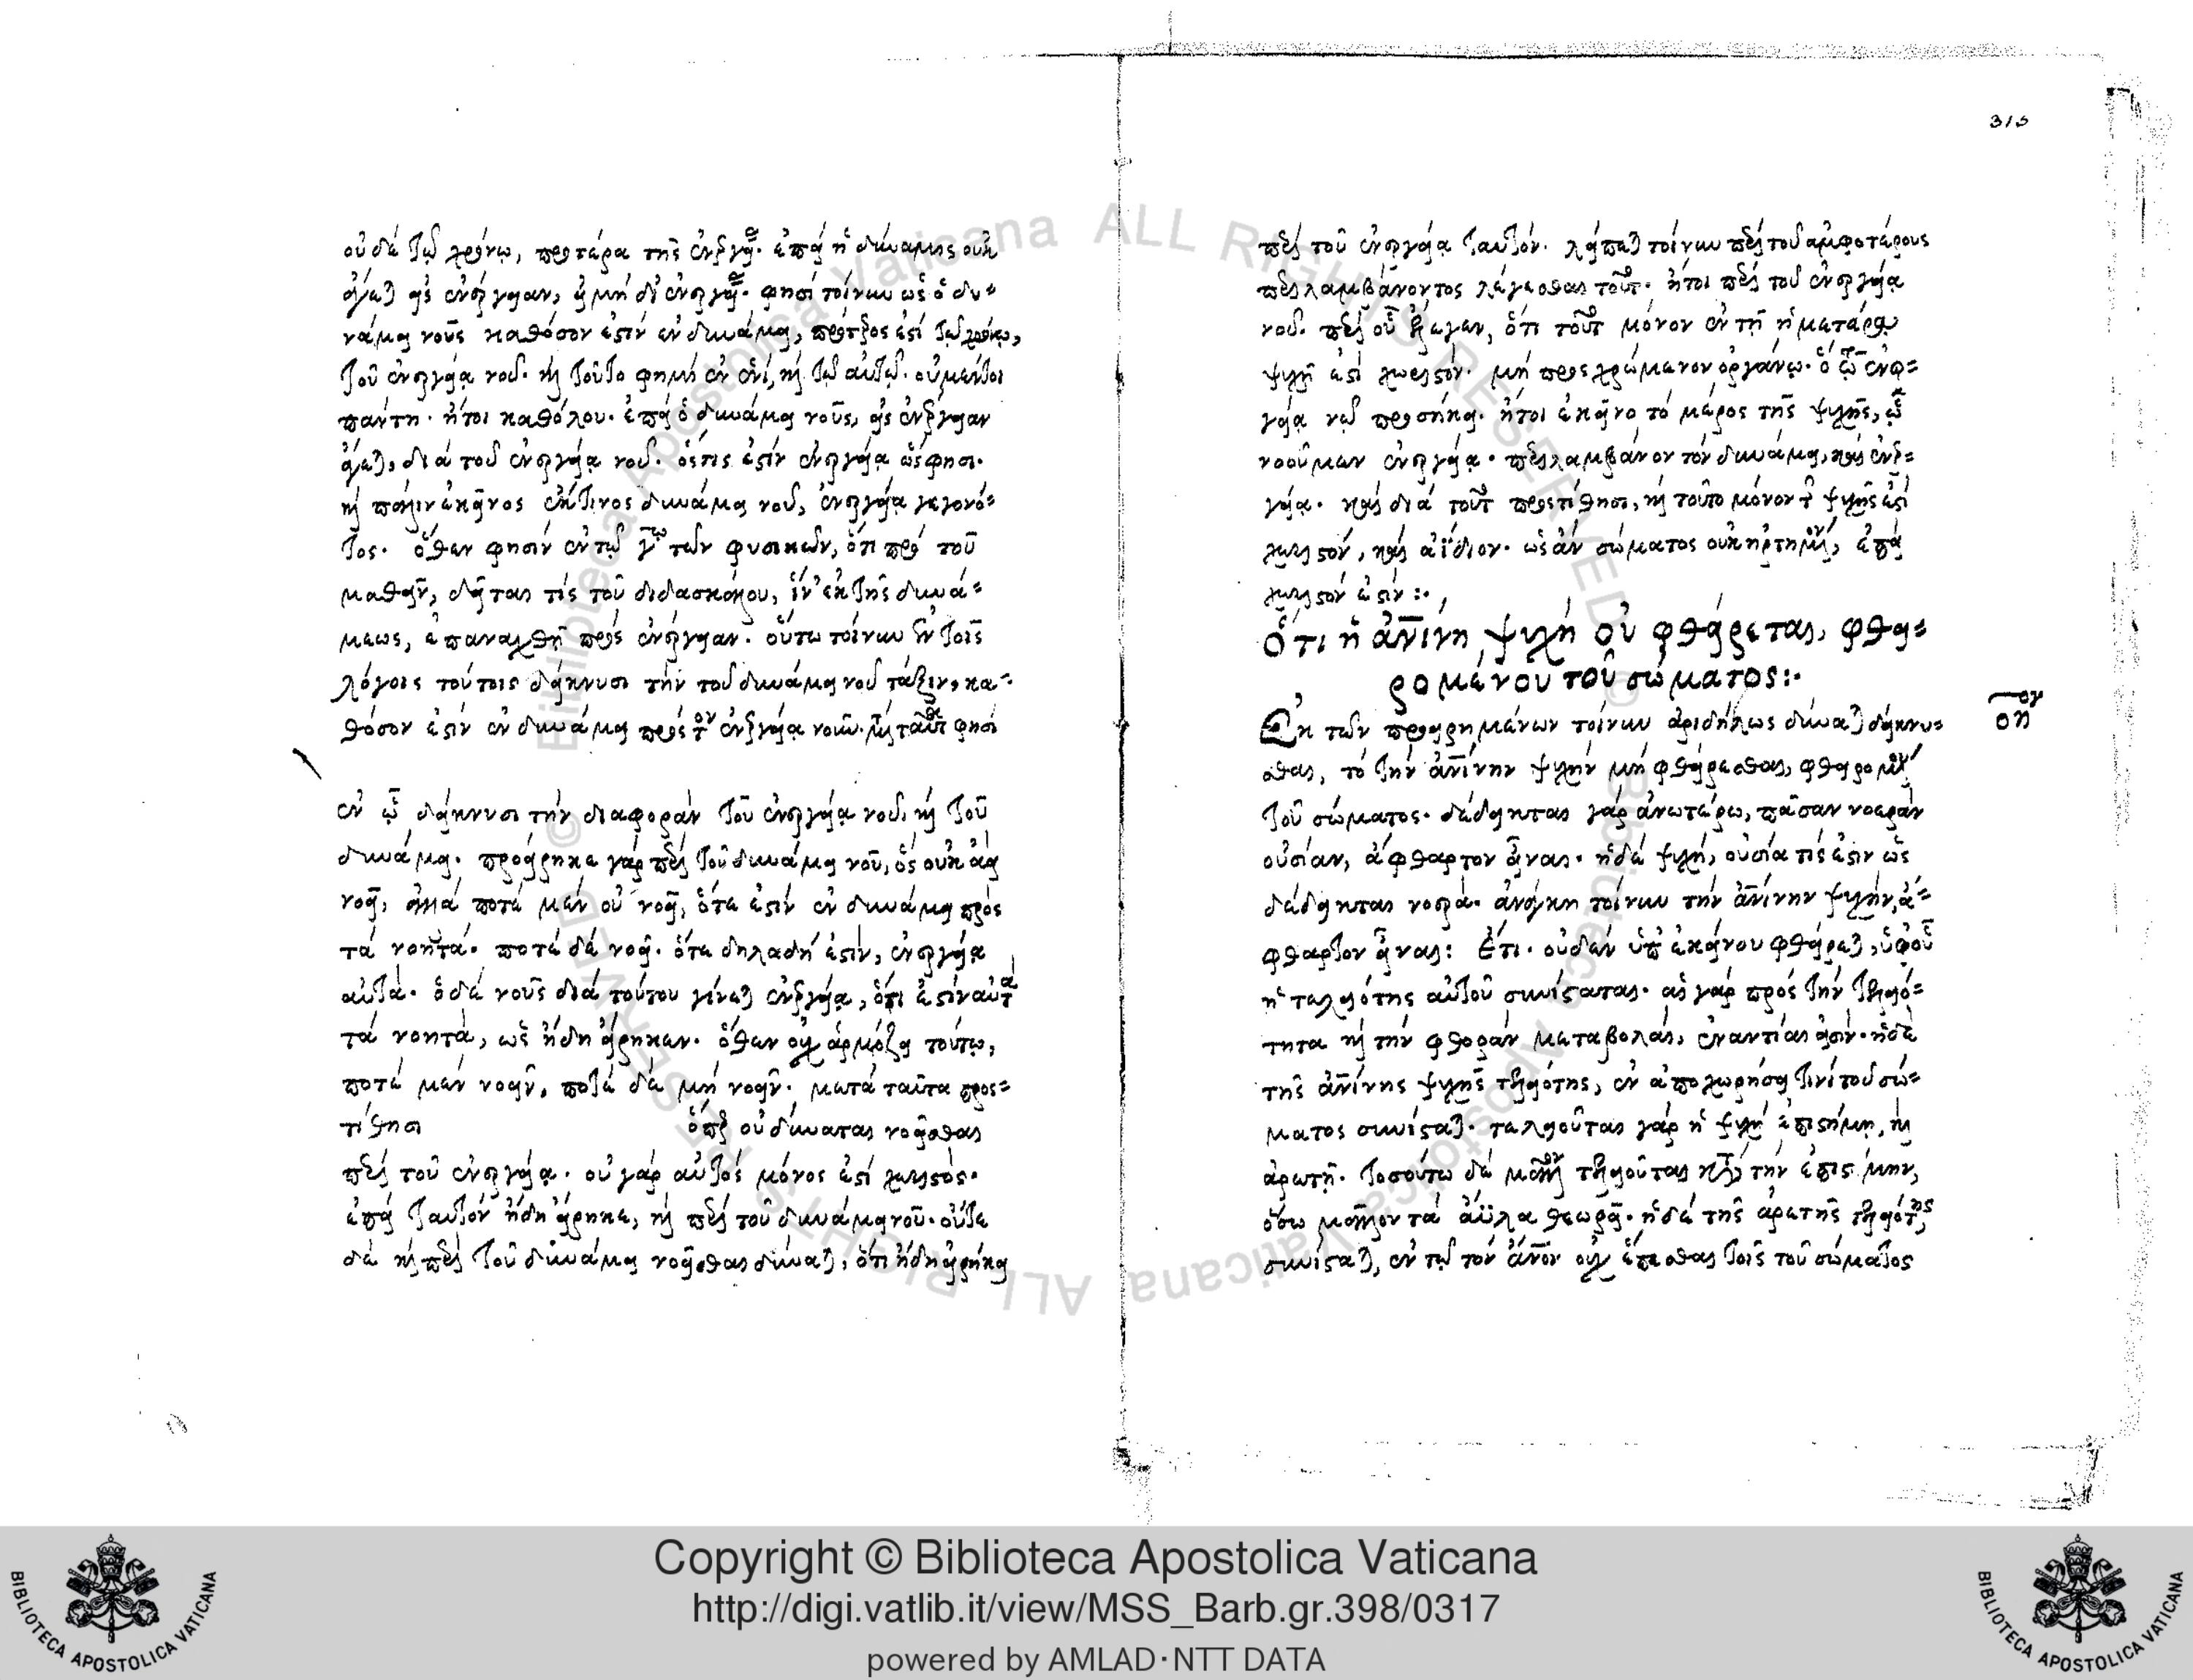 οὐδὲ τῷ χρόνῳ, προτέρα τῆς ἐνεργείας. ἐπεὶ ἡ δύναμις οὐκ
ἄγεται εἰς ἐνέργειαν, εἰ μὴ δι' ἐνεργείας. φησὶ τοίνυν ὡς ὁ δυ=
νάμει νοῦς καθόσον ἐστὶν ἐν δυνάμει, πρότερος ἐστὶ τῷ χρόνῳ,
τοῦ ἐνεργείᾳ νοῦ. καὶ τοῦτο φημὶ ἐν ἑνί, καὶ τῷ αὐτῷ. οὐ μέντοι
πάντη. ἤτοι καθόλου. ἐπεὶ ὁ δυνάμει νοῦς, εἰς ἐνέργειαν
ἄγεται, διὰ τοῦ ἐνεργείᾳ νοῦ. ὅστις ἐστὶν ἐνεργείᾳ ὥς φησι.
καὶ πάλιν ἐκεῖνος ἔκ τινος δυνάμει νοῦ, ἐνεργείᾳ γεγονό=
τος. ὅθεν φησὶν ἐν τῷ γῳ τῶν φυσικῶν, ὅτι πρὸ τοῦ
μαθεῖν, δεῖται τίς τοῦ διδασκάλου, ἵν' ἐκ τῆς δυνά=
μεως, ἐπαναχθῇ πρὸς ἐνέργειαν. οὕτω τοίνυν ἐν τοῖς
λόγοις τούτοις δείκνυσι τὴν τοῦ δυνάμει νοῦ τάξιν, κα=
θόσον ἐστὶν ἐν δυνάμει πρὸς τὸν ἐνεργείᾳ νοῦν. μετὰ ταῦτα φησὶ
ἐν ᾧ δείκνυσι τὴν διαφορὰν τοῦ ἐνεργείᾳ νοῦ, καὶ τοῦ
δυνάμει. προείρηκε γὰρ περὶ τοῦ δυνάμει νοῦ, ὃς οὐκ ἀεὶ
νοεῖ, ἀλλὰ ποτὲ μὲν οὐ νοεῖ, ὅτε ἐστὶν ἐν δυνάμει πρὸς
τὰ νοητά. ποτὲ δὲ νοεῖ. ὅτε δηλαδή ἐστιν, ἐνεργείᾳ
αὐτά. ὁ δὲ νοῦς διὰ τούτου γίνεται ἐνεργείᾳ, ὅτι ἐστὶν αὐτὰ
τὰ νοητά, ὡς ἤδη εἴρηκεν. ὅθεν οὐχ ἁρμόζει τούτῳ,
ποτὲ μὲν νοεῖν, ποτὲ δὲ μὴ νοεῖν. μετὰ ταῦτα προς=
τίθησι ὅπερ οὐ δύναται νοεῖσθαι
περὶ τοῦ ἐνεργείᾳ. οὐ γὰρ αὐτὸς μόνος ἐστὶ χωριστός.
ἐπεὶ ταυτὸν ἤδη εἴρηκε, καὶ περὶ τοῦ δυνάμει νοῦ. οὔτε
δὲ καὶ περὶ τοῦ δυνάμει νοεῖσθαι δύναται, ὅτι ἤδη εἰρήκει
315
περὶ τοῦ ἐνεργείᾳ ταυτόν. λείπεται τοίνυν περὶ τοῦ ἀμφοτέρους
περιλαμβάνοντος λέγεσθαι τοῦτο. ἤτοι περὶ τοῦ ἐνεργείᾳ
νοῦ. περὶ οὗ ἔλεγεν, ὅτι τοῦτο μόνον ἐν τῇ ἡμετέρᾳ
ψυχῇ ἐστὶ χωριστόν. μὴ προσχρώμενον ὀργάνῳ. ὃ τῷ ἐνερ=
γείᾳ νῷ προσήκει. ἤτοι ἐκεῖνο τὸ μέρος τῆς ψυχῆς, ᾧ
νοοῦμεν ἐνεργείᾳ. περιλαμβάνον τὸν δυνάμει, καὶ ἐνερ=
γείᾳ. καὶ διὰ τοῦτο προστίθησι, καὶ τοῦτο μόνον τῆς ψυχῆς ἐστὶ
χωριστόν, καὶ ἀΐδιον. ὡς ἂν σώματος οὐκ ἠρτημένον, ἐπεὶ
χωριστόν ἐστιν :.
Ὅτι ἡ ἀνίνη ψυχὴ οὐ φθείρεται, φθει=
ρομένου τοῦ σώματος:.
Ἐκ τῶν προειρημένων τοίνυν ἀριδήλως δύναται δείκνυ= οηον
σθαι, τὸ τὴν ἀνίνην ψυχὴν μὴ φθείρεσθαι, φθειρομένου
τοῦ σώματος. δέδεικται γὰρ ἀνωτέρω, πᾶσαν νοερὰν
οὐσίαν, ἄφθαρτον εἶναι. ἡ δὲ ψυχή, οὐσία τίς ἐστιν ὡς
δέδεικται νοερά. ἀνάγκη τοίνυν τὴν ἀνίνην ψυχήν, ἄ=
φθαρτον εἶναι: Ἔτι. οὐδὲν ὑπ' ἐκείνου φθείρεται, ὑφ' οὗ
ἡ τελειότης αὐτοῦ συνίσταται. αἱ γὰρ πρὸς τὴν τελειό=
τητα καὶ τὴν φθορὰν μεταβολαί, ἐναντίαι εἰσίν. ἡ δὲ
τῆς ἀνίνης ψυχῆς τελειότης, ἐν ἀποχωρήσει τινὶ τοῦ σώ=
ματος συνίσταται. τελειοῦται γὰρ ἡ ψυχὴ ἐπιστήμῃ, καὶ
ἀρετῇ. τοσούτῳ δὲ μᾶλλον τελειοῦται κατὰ τὴν ἐπιστήμην,
ὅσῳ μᾶλλον τὰ ἄϋλα θεωρεῖ. ἡ δὲ τῆς ἀρετῆς τελειότης
συνίσταται, ἐν τῷ τὸν ἄνον οὐχ ἕπεσθαι τοῖς τοῦ σώματος
Copyright © Biblioteca Apostolica Vaticana
http://digi.vatlib.it/view/MSS_Barb.gr.398/0317
powered by AMLAD·NTT DATA
BIBLIOTECA APOSTOLICA VATICANA
BIBLIOTECA APOSTOLICA VATICANA